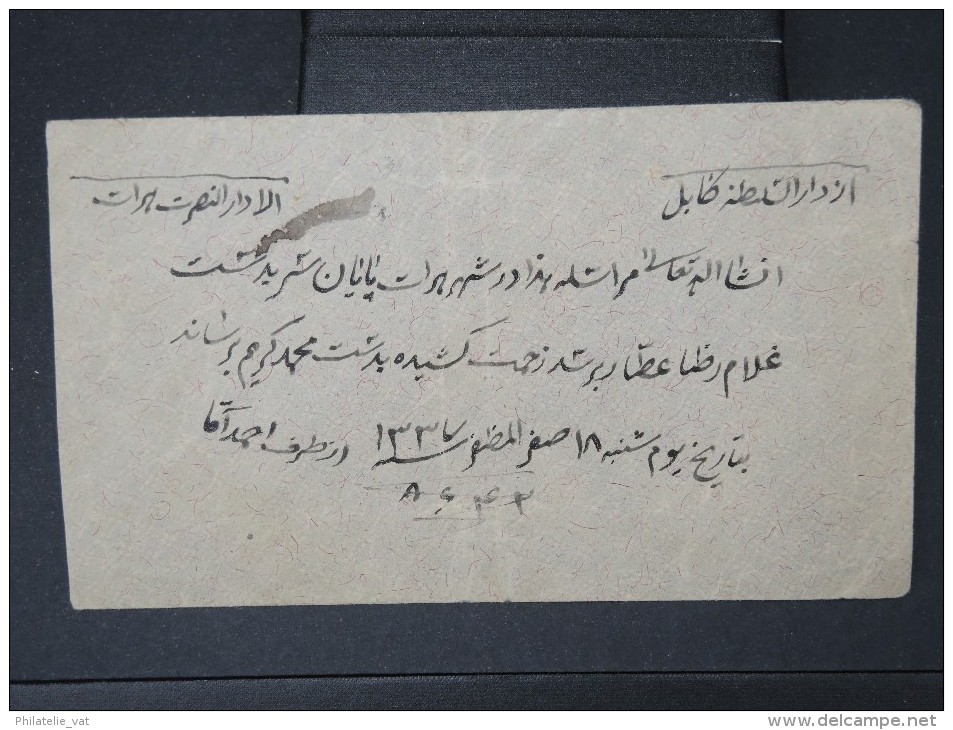 از دار السلطنه کابل
الا دار النصرت هرات
انشا اله تعالی مراسله هذا در شهر هرات پایان سر بدست
غلام رضا عطار برسد زحمت کشیده بدست محمد کریم برساند
بتاریخ یوم شنبه ۱۸ صفر المظفر سنه ۱۳۳۷ از طرف احمد آقا
Philatelie_vat
www.delcampe.net